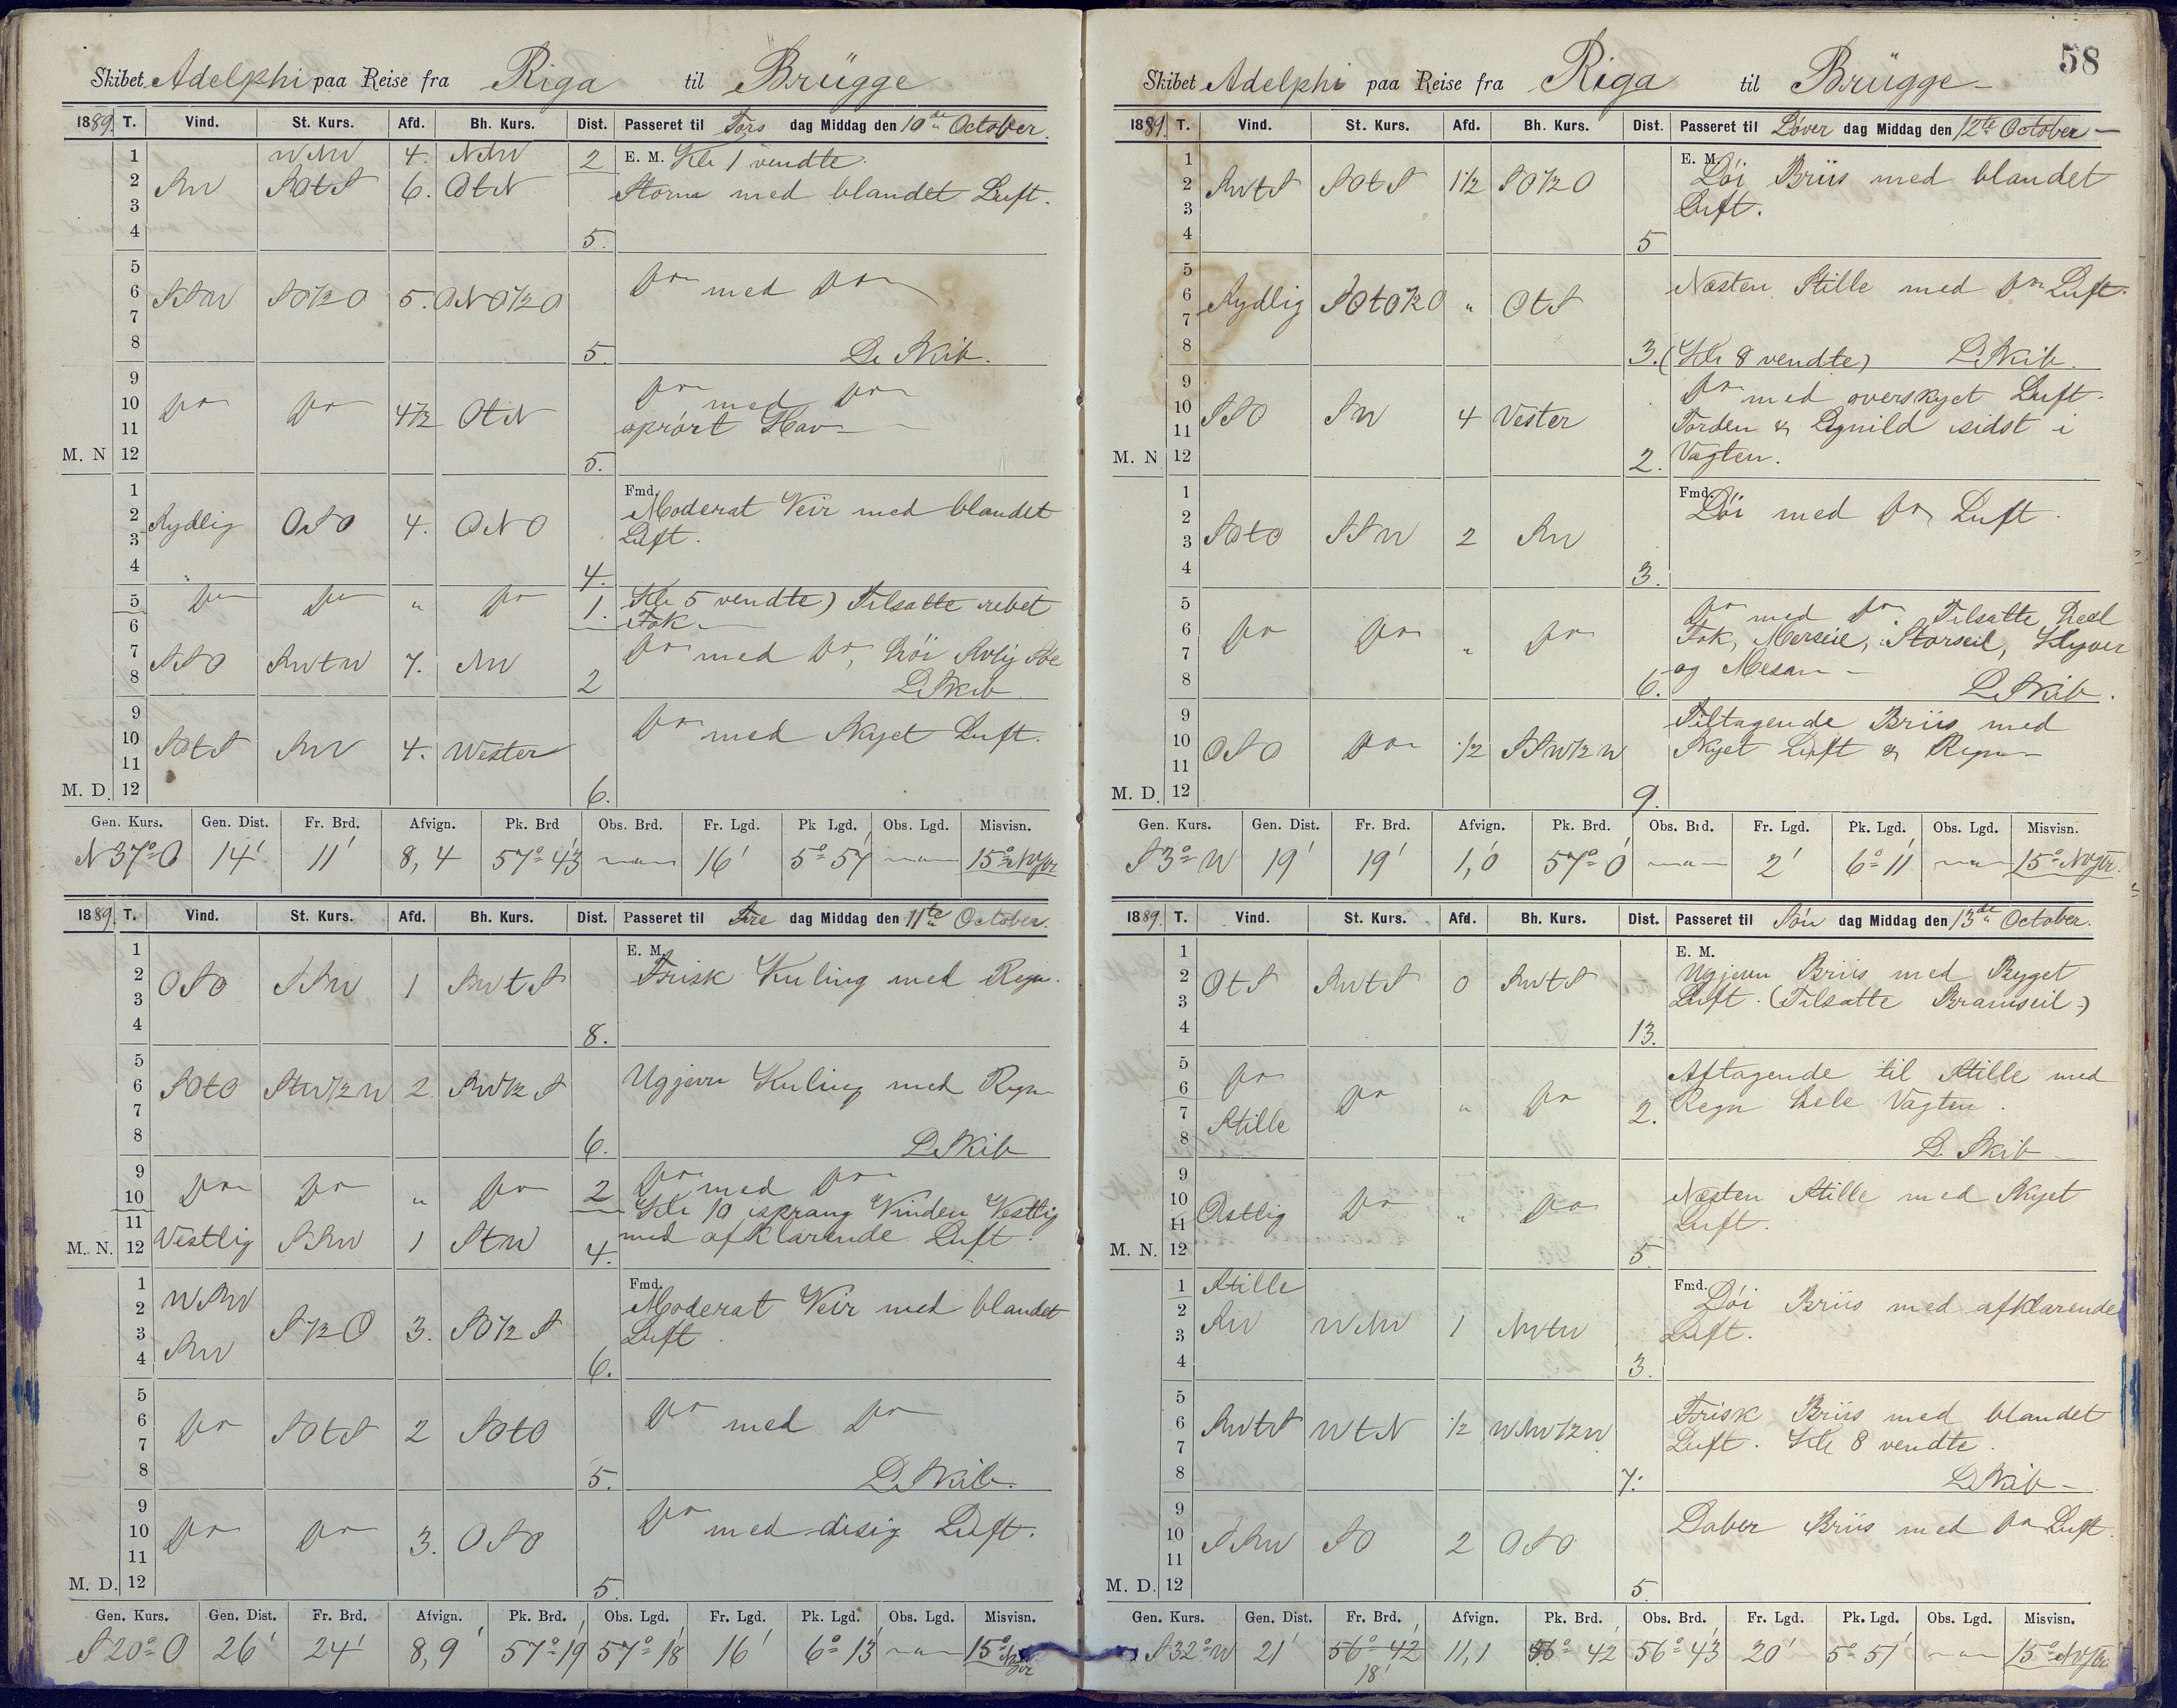 58
Skibet Adelphi paa Reise fra Riga til Brügge
1889. T. Vind. St. Kurs. Afd. Bh. Kurs. Dist. Passeret til Tors dag Middag den 10de October.
1 WNW 4. NNW 2 E. M. Kl 1 vendte.
2 SW SOtS 6. OtN Storm med blandet Luft.
3
4 5.
5
6 SSW SO½O 5. ONO½O Do med Do
7
8 5. L. Skib.
9
10 Do Do 4½ OtN Do med Do
11 oprört Hav
M. N 12 5.
1 Fmd.
2 Sydlig OSO 4. ONO Moderat Veir med blandet
3 Luft.
4 4.
5 Do Do " Do 1. Kl 5 vendte) Tilsatte rebet
6 Fok
7 SSO SWtW 7. NW Do med Do, Höi Sölig Söe
8 2 L. Skib
9
10 SOtS SW 4. Wester Do med Skyet Luft.
11
M. D. 12 6.
Gen. Kurs. Gen. Dist. Fr. Brd. Afvign. Pk. Brd Obs. Brd. Fr. Lgd. Pk Lgd. Obs. Lgd. Misvisn.
N 37° O 14' 11' 8,4 57° 43' 16' 5° 57' 15° NV
1889. T. Vind. St. Kurs. Afd. Bh. Kurs. Dist. Passeret til Fre dag Middag den 11te October.
1 E. M.
2 OSO SSW 1 SWtS Frisk Kuling med Regn.
3
4 8.
5
6 SOtO StW½W 2. SW½S Ugjevn Kuling med Regn
7
8 6. L. Skib
9 Do Do " Do 2 Do med Do
10 Kl 10 sprang Vinden Vestlig
11
M. N. 12 Vestlig SSW 1 StW 4. med afklarende Luft.
1 WSW Fmd.
2 S½O 3. SO½S Moderat Veir med blandet
3 SW Luft.
4 6.
5
6 Do SOtS 2 SOtO Do med Do
7
8 5. L. Skib.
9
10 Do Do 3. OSO Do med disig Luft.
11
M. D. 12 5.
Gen. Kurs. Gen. Dist. Fr. Brd. Afvign. Pk. Brd. Obs. Lgd. Fr. Lgd. Pk. Lgd. Obs. Lgd. Misvisn.
S 20° O 26' 24' 8,9' 57° 19' 57° 18' 16' 6° 13' 15°
Skibet Adelphi paa Reise fra Riga til Brügge
1889. T. Vind. St. Kurs. Afd. Bh. Kurs. Dist. Passeret til Löver dag Middag den 12te October
1 E. M.
2 SWtS SOtS 1½ SO½O Löi Briis med blandet
3 Luft.
4 5
5
6 Sydlig SOtO½O " OtS Næsten Stille med Do Luft.
7
8 3. (Kl 8 vendte) L. Skib.
9
10 SSO SW 4 Vester Do med overskyet Luft.
11 Torden & Lynild sidst i
M. N. 12 2. Vagten.
1 Fmd.
2 SOtO SSW 2 SW Löi med Do Luft.
3
4 3.
5 Do med Do. Tilsatte
6 Do Do " Do Fok, Merseil, Storseil, Klyver
7 og Mesan
8 6. L. Skib.
9 Tiltagende Briis med
10 OSO Do ½ SSW½W Skyet Luft & Regn
11
M. D. 12 9.
Gen. Kurs. Gen. Dist. Fr. Brd. Afvign. Pk. Brd. Obs. Brd. Fr. Lgd. Pk. Lgd. Obs. Lgd. Misvisn.
S 3° W 19' 19' 1,0 57° 0' 2' 6° 11' 15° NV
1889. T. Vind. St. Kurs. Afd. Bh. Kurs. Dist. Passeret til Sön dag Middag den 13de October.
1 E. M.
2 OtS SWtS 0 SWtS Ugjevn Briis med Byget
3 Luft. (Tilsatte Bramseil)
4 13.
5 Aftagende til Stille med
6 Do Do " Do 2. Regn hele Vagten.
7 Stille
8 L. Skib
9
10 Östlig Do " Do Næsten Stille med Skyet
11 Luft.
M. N. 12 5.
1 Stille Fmd.
2 SW WNW 1 NWtW Löi Briis med afklarende
3 Luft.
4 3.
5
6 SWtS WtN ½ WNW½W Frisk Briis med blandet
7 Luft. Kl 8 vendte.
8 7. L. Skib
9
10 SSW SO 2 OSO Laber Briis med Do Luft.
11
M. D. 12 5.
Gen. Kurs. Gen. Dist. Fr. Brd. Afvign. Pk. Brd. Obs. Brd. Fr. Lgd. Pk. Lgd. Obs. Lgd. Misvisn.
S 32° W 21' 56° 42' 11,1 56° 42' 56° 43' 20' 5° 51' 15° NV
18'